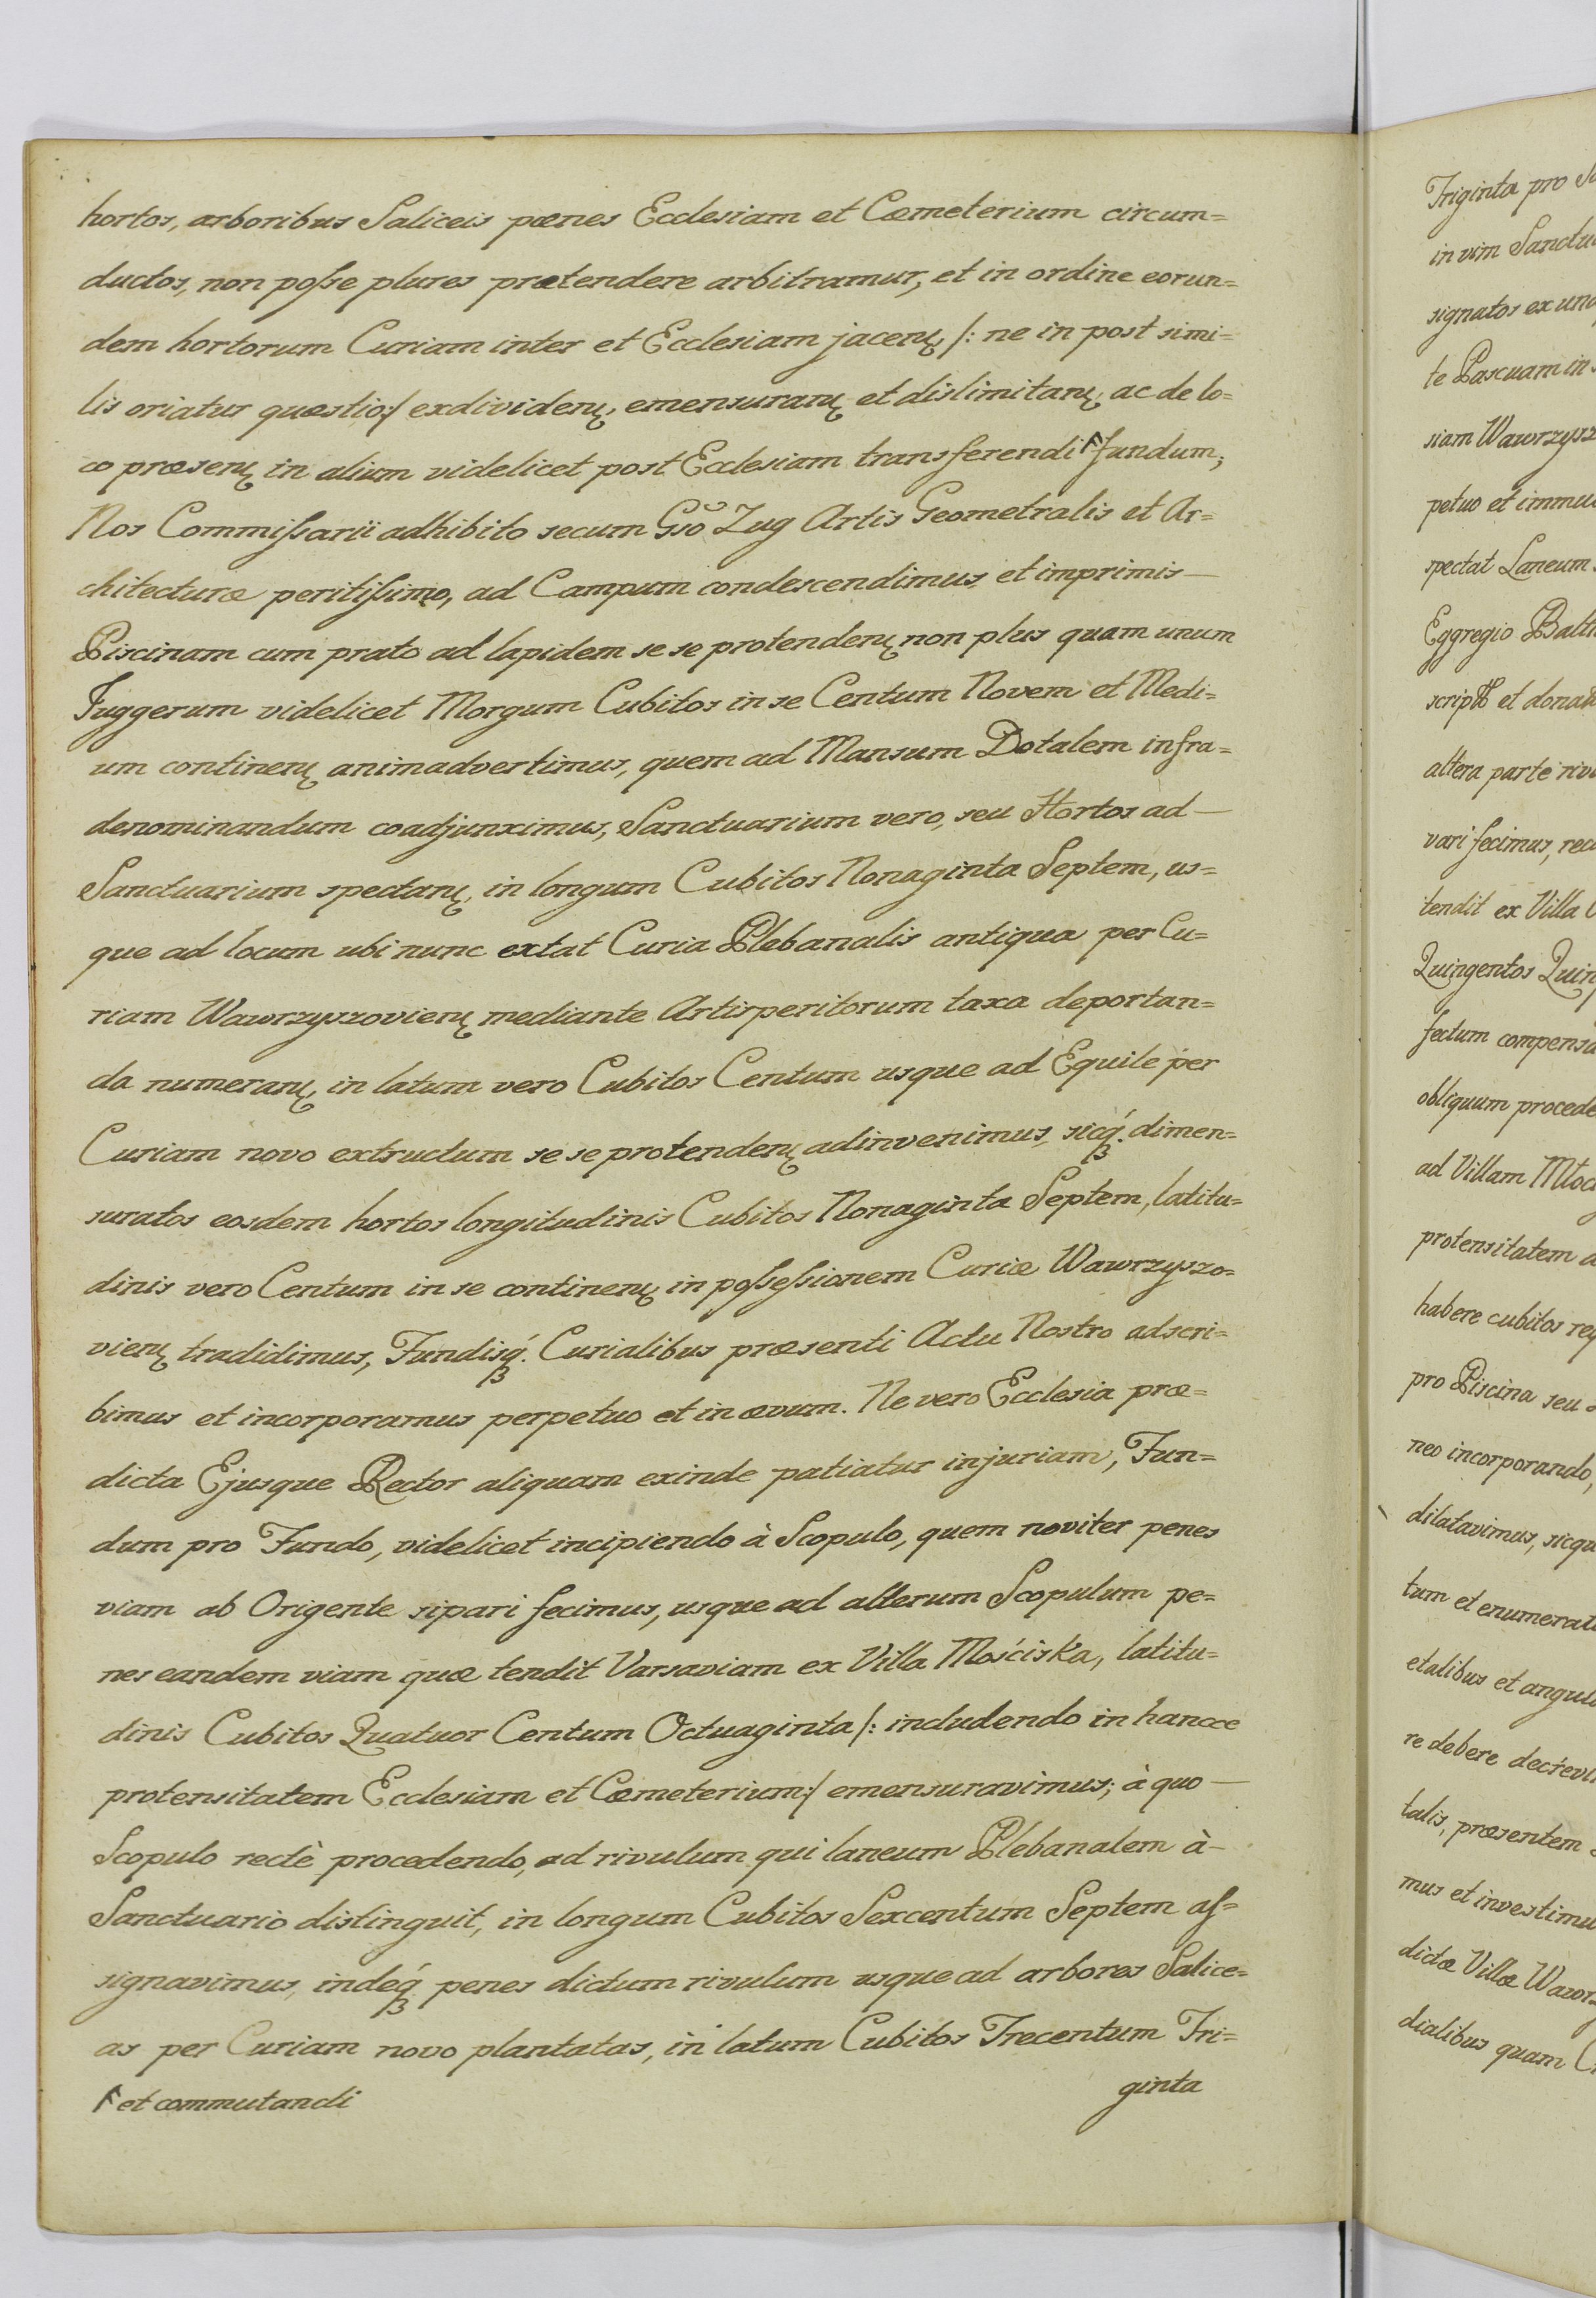 hortos, arboribus Saliceis pœnes Ecclesiam et Cœmeterium circum=
ductos, non posse plures prætendere arbitramur, et in ordine eorun=
dem hortorum Curiam inter et Ecclesiam jacenӊ /: ne in post simi=
lis oriatur quæstio:/ exdividenӊ, emensuranӊ et dislimitanӊ, ac de lo=
co præsenӊ in alium videlicet post Ecclesiam transferendi Ꟶ fundum;
Nos Commissarii adhibito secum Gsõ Zug Artis Geometralis et Ar=
chitecturæ peritissimo, ad Campum condescendimus, et imprimis —
Piscinam cum prato ad lapidem se se protendenӊ non plus quam unum
Juggerum videlicet Morgum Cubitos in se Centum Novem et Medi=
um continenӊ animadvertimus, quem ad Mansum Dotalem infra=
denominandum coadjunximus, Sanctuarium vero, seu Hortos ad —
Sanctuarium spectanӊ, in longum Cubitos Nonaginta Septem, us=
que ad locum ubi nunc extat Curia Plebanalis antiqua per Cu=
riam Wawrzyszovienӊ mediante Artisperitorum taxa deportan=
da numeranӊ, in latum vero Cubitos Centum usque ad Equile per
Curiam novo extructum se se protendenӊ adinvenimus, sicq́ʒ. dimen=
suratos eosdem hortos longitudinis Cubitos Nonaginta Septem, latitu=
dinis vero Centum in se continenӊ in possessionem Curiæ Wawrzyszo=
vienӊ tradidimus, Fundisq́ʒ. Curialibus præsenti Actu Nostro adscri=
bimus et incorporamus perpetuo et in ævum. Ne vero Ecclesia præ=
dicta Ejusque Rector aliquam exinde patiatur injuriam, Fun=
dum pro Fundo, videlicet incipiendo à Scopulo, quem noviter penes
viam ab Origente sipari fecimus, usque ad alterum Scopulum pe=
nes eandem viam quæ tendit Varsaviam ex Villa Mościska, latitu=
dinis Cubitos Quatuor Centum Octuaginta /: includendo in hancce
protensitatem Ecclesiam et Cœmeterium:/ emensuravimus; à quo —
Scopulo rectè procedendo, ad rivulum qui laneum Plebanalem à —
Sanctuario distinguit, in longum Cubitos Sexcentum Septem as=
signavimus, indeq́ʒ penes dictum rivulum usque ad arbores Salice=
as per Curiam novo plantatas, in latum Cubitos Trecentum Tri=
Ꟶ et commutandi
ginta
Triginta pro
in vim
signatos ex
te Pascuam in
siam
petuo et
spectat Laneum
Eggregio
et
altera parte
vari fecimus,
tendit ex Villa
Quingentos
fectum
obliquum
ad Villam
protensitatem
habere cubitos
pro Piscina seu
neo incorporando,
dilatavimus,
tum et
etalibus et
re debere
talis, præsentem
mus et
dictæ Villæ
dialibus quam